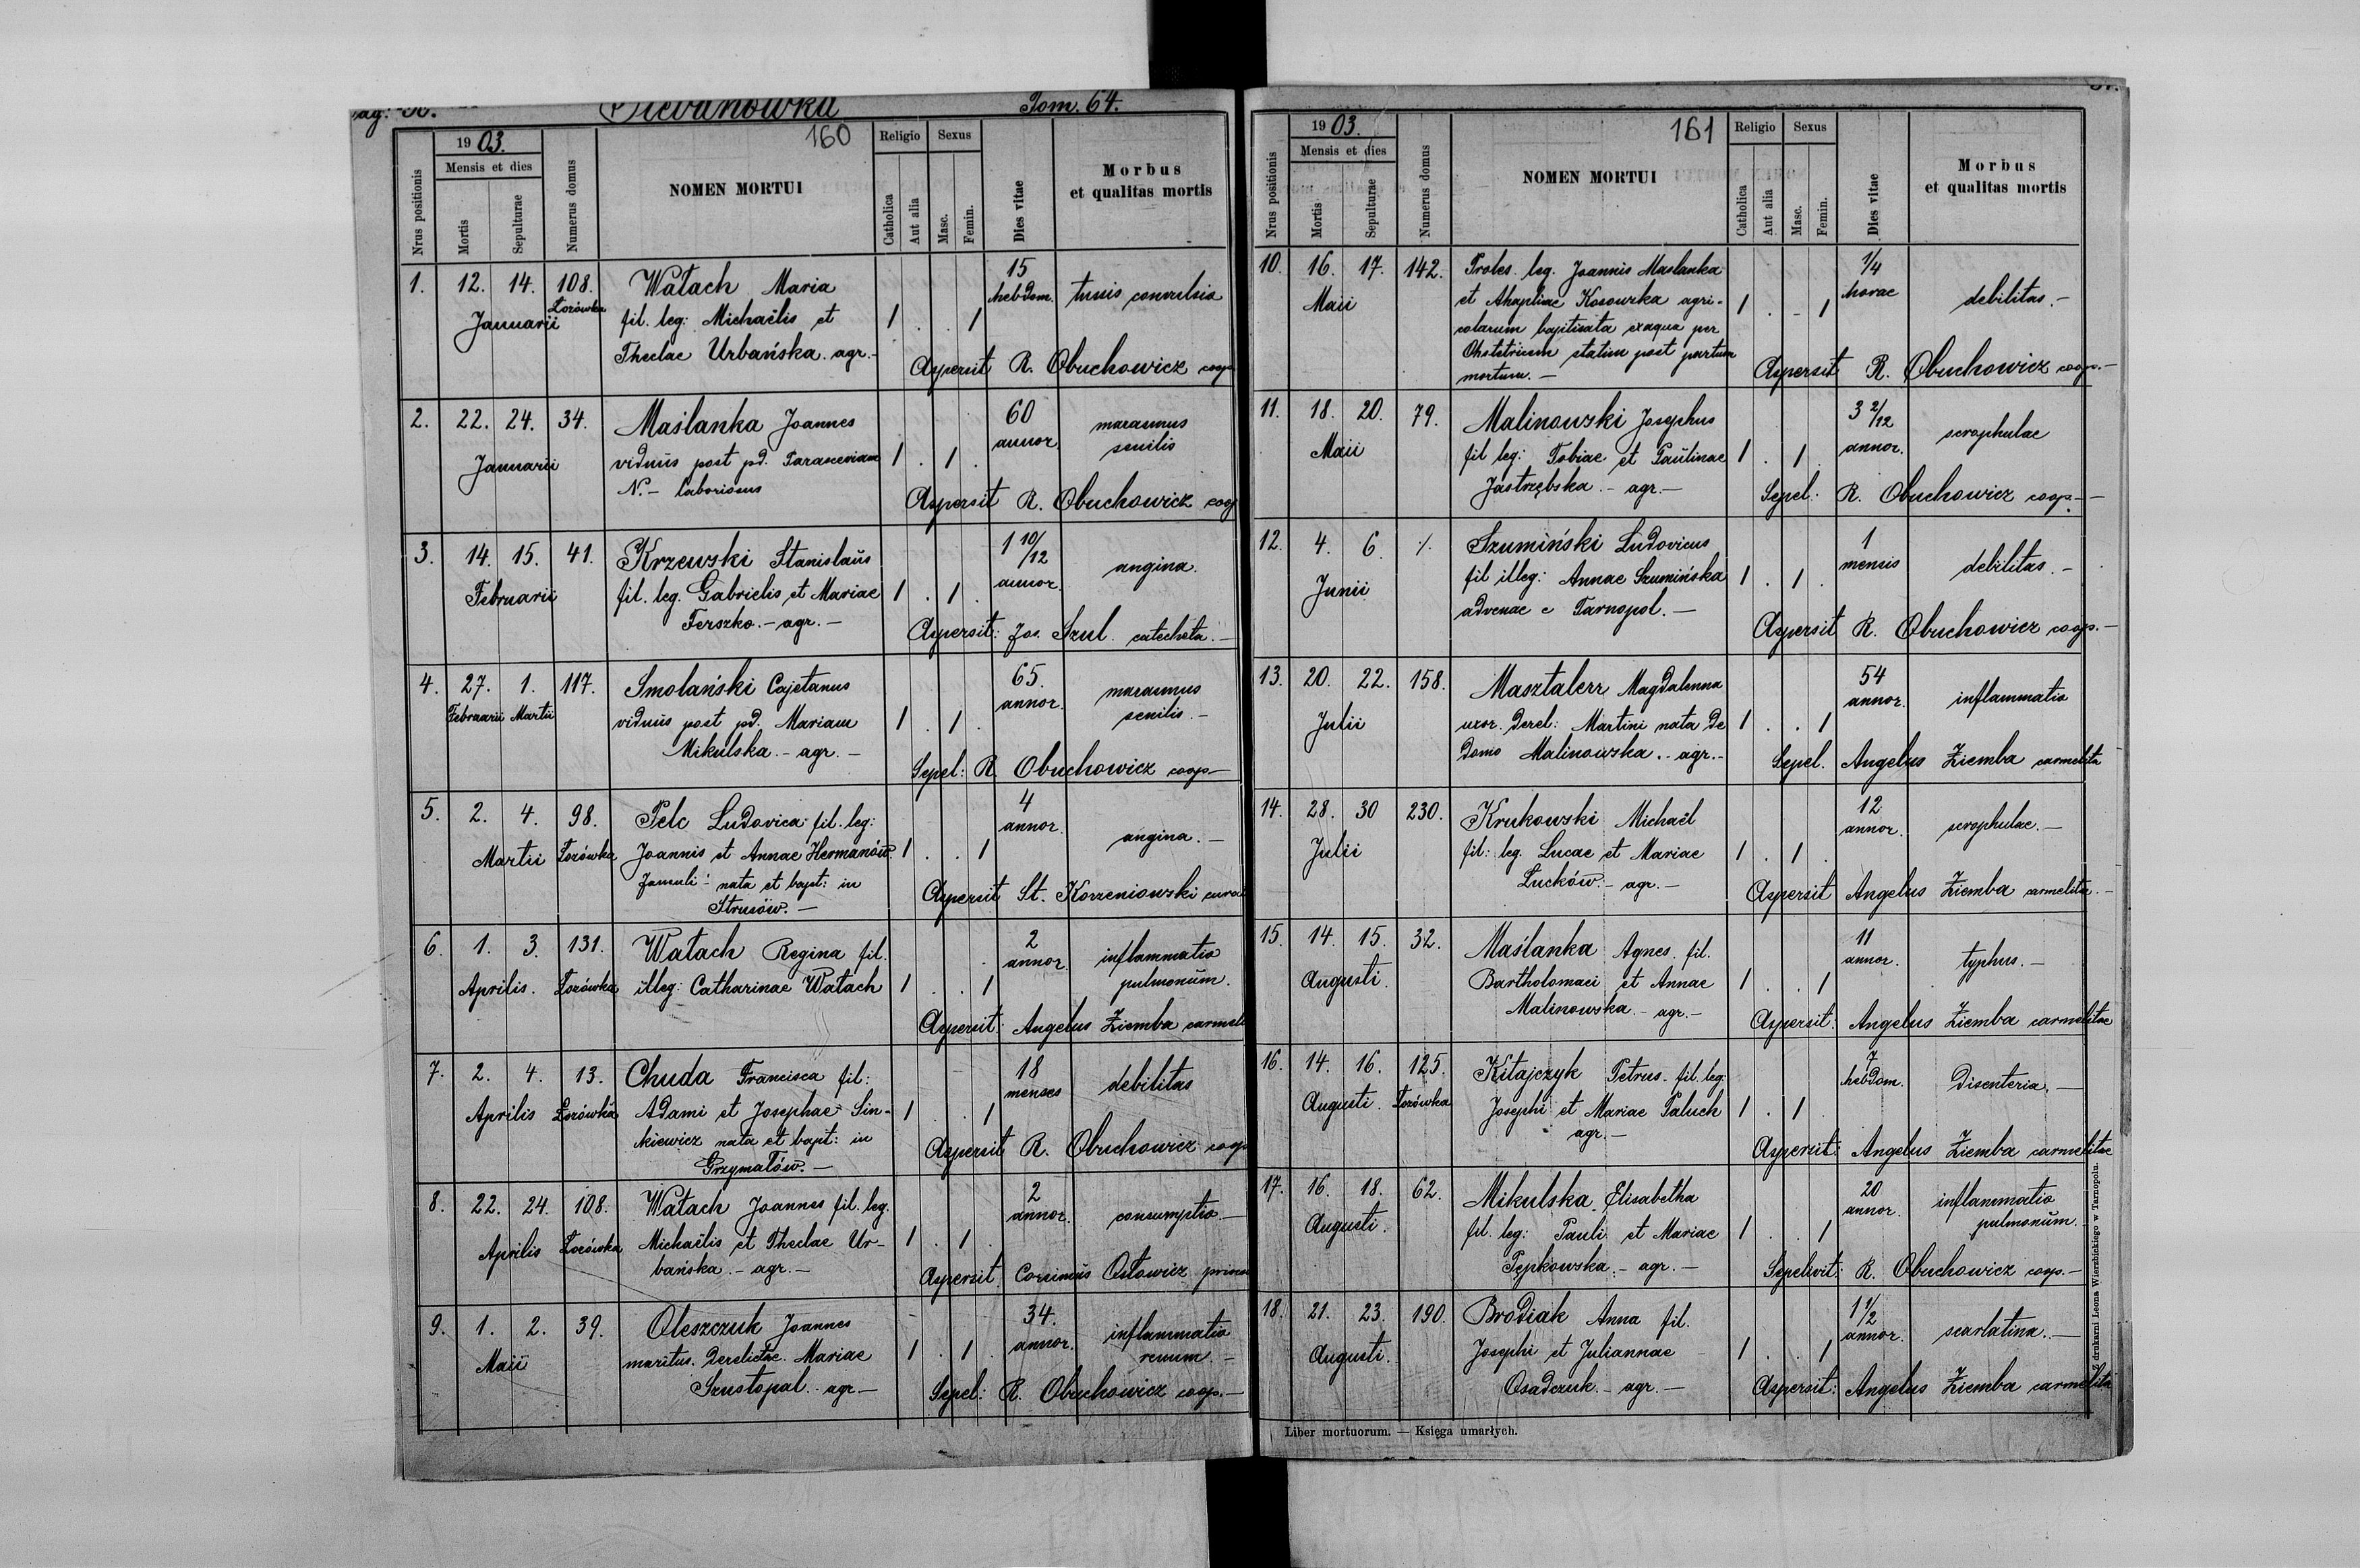 pag. 30. Dievanówka Tom. 64.
160
Nrus positionis
1903.
Mensis et dies
Mortis
Sepulturae
Numerus domus
NOMEN MORTUI
Religio
Catholica
Aut alia
Sexus
Masc.
Femin.
Dies vitae
Morbus
et qualitas mortis
1. 12. 14. 108. Watach Maria 15
Januarii Łozówka fil. leg: Michaëlis et 1 . . 1 hebdom. tussis convulsia
Theclae Urbańska. agr.-
Aspersit R. Obuchowicz coop
2. 22. 24. 34. Maślanka Joannes 60 marasmus
Januarii viduus post pd. Parasceviam 1 . 1 . annor. senilis
N.- laboriosus
Aspersit R. Obuchowicz coop
3. 14. 15. 41. Krzewski Stanislaus 1 10/12
Februarii fil. leg. Gabrielis et Mariae 1 . 1 . annor. angina.
Ferszko.- agr.-
Aspersit: Jos. Szul. catecheta.-
4. 27. 1. 117. Smolański Cajetanus 65. marasmus
Februarii Martii viduus post pd. Mariam 1 . 1 . annor. senilis.-
Mikulska.- agr.-
Sepel: R. Obuchowicz coop-
5. 2. 4. 98. Pelc Ludovica fil. leg: 4
Martii Łozówka Joannis et Annae Hermanów. 1 . . 1 annor. angina.-
famuli- nata et bapt: in
Strusów.-
Aspersit St. Korzeniowski curat
6. 1. 3. 131. Watach Regina fil. 2 inflammatio
Aprilis. Łozówka illeg: Catharinae Watach 1 . . 1 annor. pulmonum.
Aspersit: Angelus Ziemba carmel
7. 2. 4. 13. Chuda Francisca fil: 18
Aprilis Łozówka Adami et Josephae Sin- 1 . 1 menses debilitas
kiewicz nata et bapt: in
Grzymałów.-
Aspersit R. Obuchowicz coop
8. 22. 24. 108. Watach Joannes fil. leg. 2
Aprilis Łozówka Michaëlis et Theclae Ur- 1 . 1 . annor. consumptio.-
bańska.- agr.-
Aspersit
9. 1. 2. 39. Oleszczuk Joannes 34. inflammatio
Maii maritus. derelictae. Mariae 1 . 1 . annor. renum.-
Szustopal.. agr-
Sepel: R. Obuchowicz coop.-
161
Nrus positionis
1903.
Mensis et dies
Mortis
Sepulturae
Numerus domus
NOMEN MORTUI
Religio
Catholica
Aut alia
Sexus
Masc.
Femin.
Dies vitae
Morbus
et qualitas mortis
10. 16. 17. 142. Proles. leg. Joannis Maslanka 1/4
Maii et Ahaphiae Kosowska agri- 1 . - 1 horae debilitas.-
colarum baptisata ex aqua per
Obstetricem statim post partum
mortua.-
Aspersit R. Obuchowicz coop.-
11. 18. 20. 79. Malinowski Josephus 3 2/12
Maii fil leg: Tobiae et Paulinae 1 . 1 . annor. scrophulae
Jastrzębska.- agr.-
Sepel: R. Obuchowicz coop.-
12. 4. 6. ./. Szumiński Ludovicus 1
Junii fil illeg: Annae Szumińska 1 . 1 . mensis debilitas.-
advenae e Tarnopol.-
Aspersit R. Obuchowicz coop.-
13. 20. 22. 158. Masztalerr Magdalenna 54
Julii uxor. derel: Martini nata de 1 . . 1 annor. inflammatio
domo Malinowska.- agr.-
Sepel. Angelus Ziemba carmelita
14. 28. 30 230. Krukowski Michaël 12
Julii fil: leg. Lucae et Mariae 1 . 1 . annor. scrophulae.-
Łucków.- agr.-
Aspersit Angelus Ziemba carmelita.-
15. 14. 15. 32. Maślanka Agnes. fil. 11
Augusti. Bartholomaei et Annae 1 . . 1 annor. typhus.-
Malinowska.- agr.-
Aspersit: Angelus Ziemba carmelitae
16. 14. 16. 125. Kitajczyk Petrus. fil. leg: 7
Augusti. Łozówka Josephi et Mariae Paluch 1 . 1 . hebdom. disenteria.-
agr.-
Aspersit: Angelus Ziemba carmelitae
17. 16. 18. 62. Mikulska Elisabetha 20 inflammatio
Augusti. fil. leg: Pauli et Mariae 1 . . 1 annor. pulmonum.
Pępkowska.- agr.-
Sepelivit: R. Obuchowicz coop.-
18. 21. 23. 190. Brodiak Anna fil. 1 1/2
Augusti. Josephi et Juliannae 1 . . 1 annor. scarlatina.-
Osadczuk.- agr.-
Aspersit: Angelus Ziemba carmelita
Liber mortuorum. — Księga umarłych.
Z drukarni Leona Wierzbickiego w Tarnopolu.